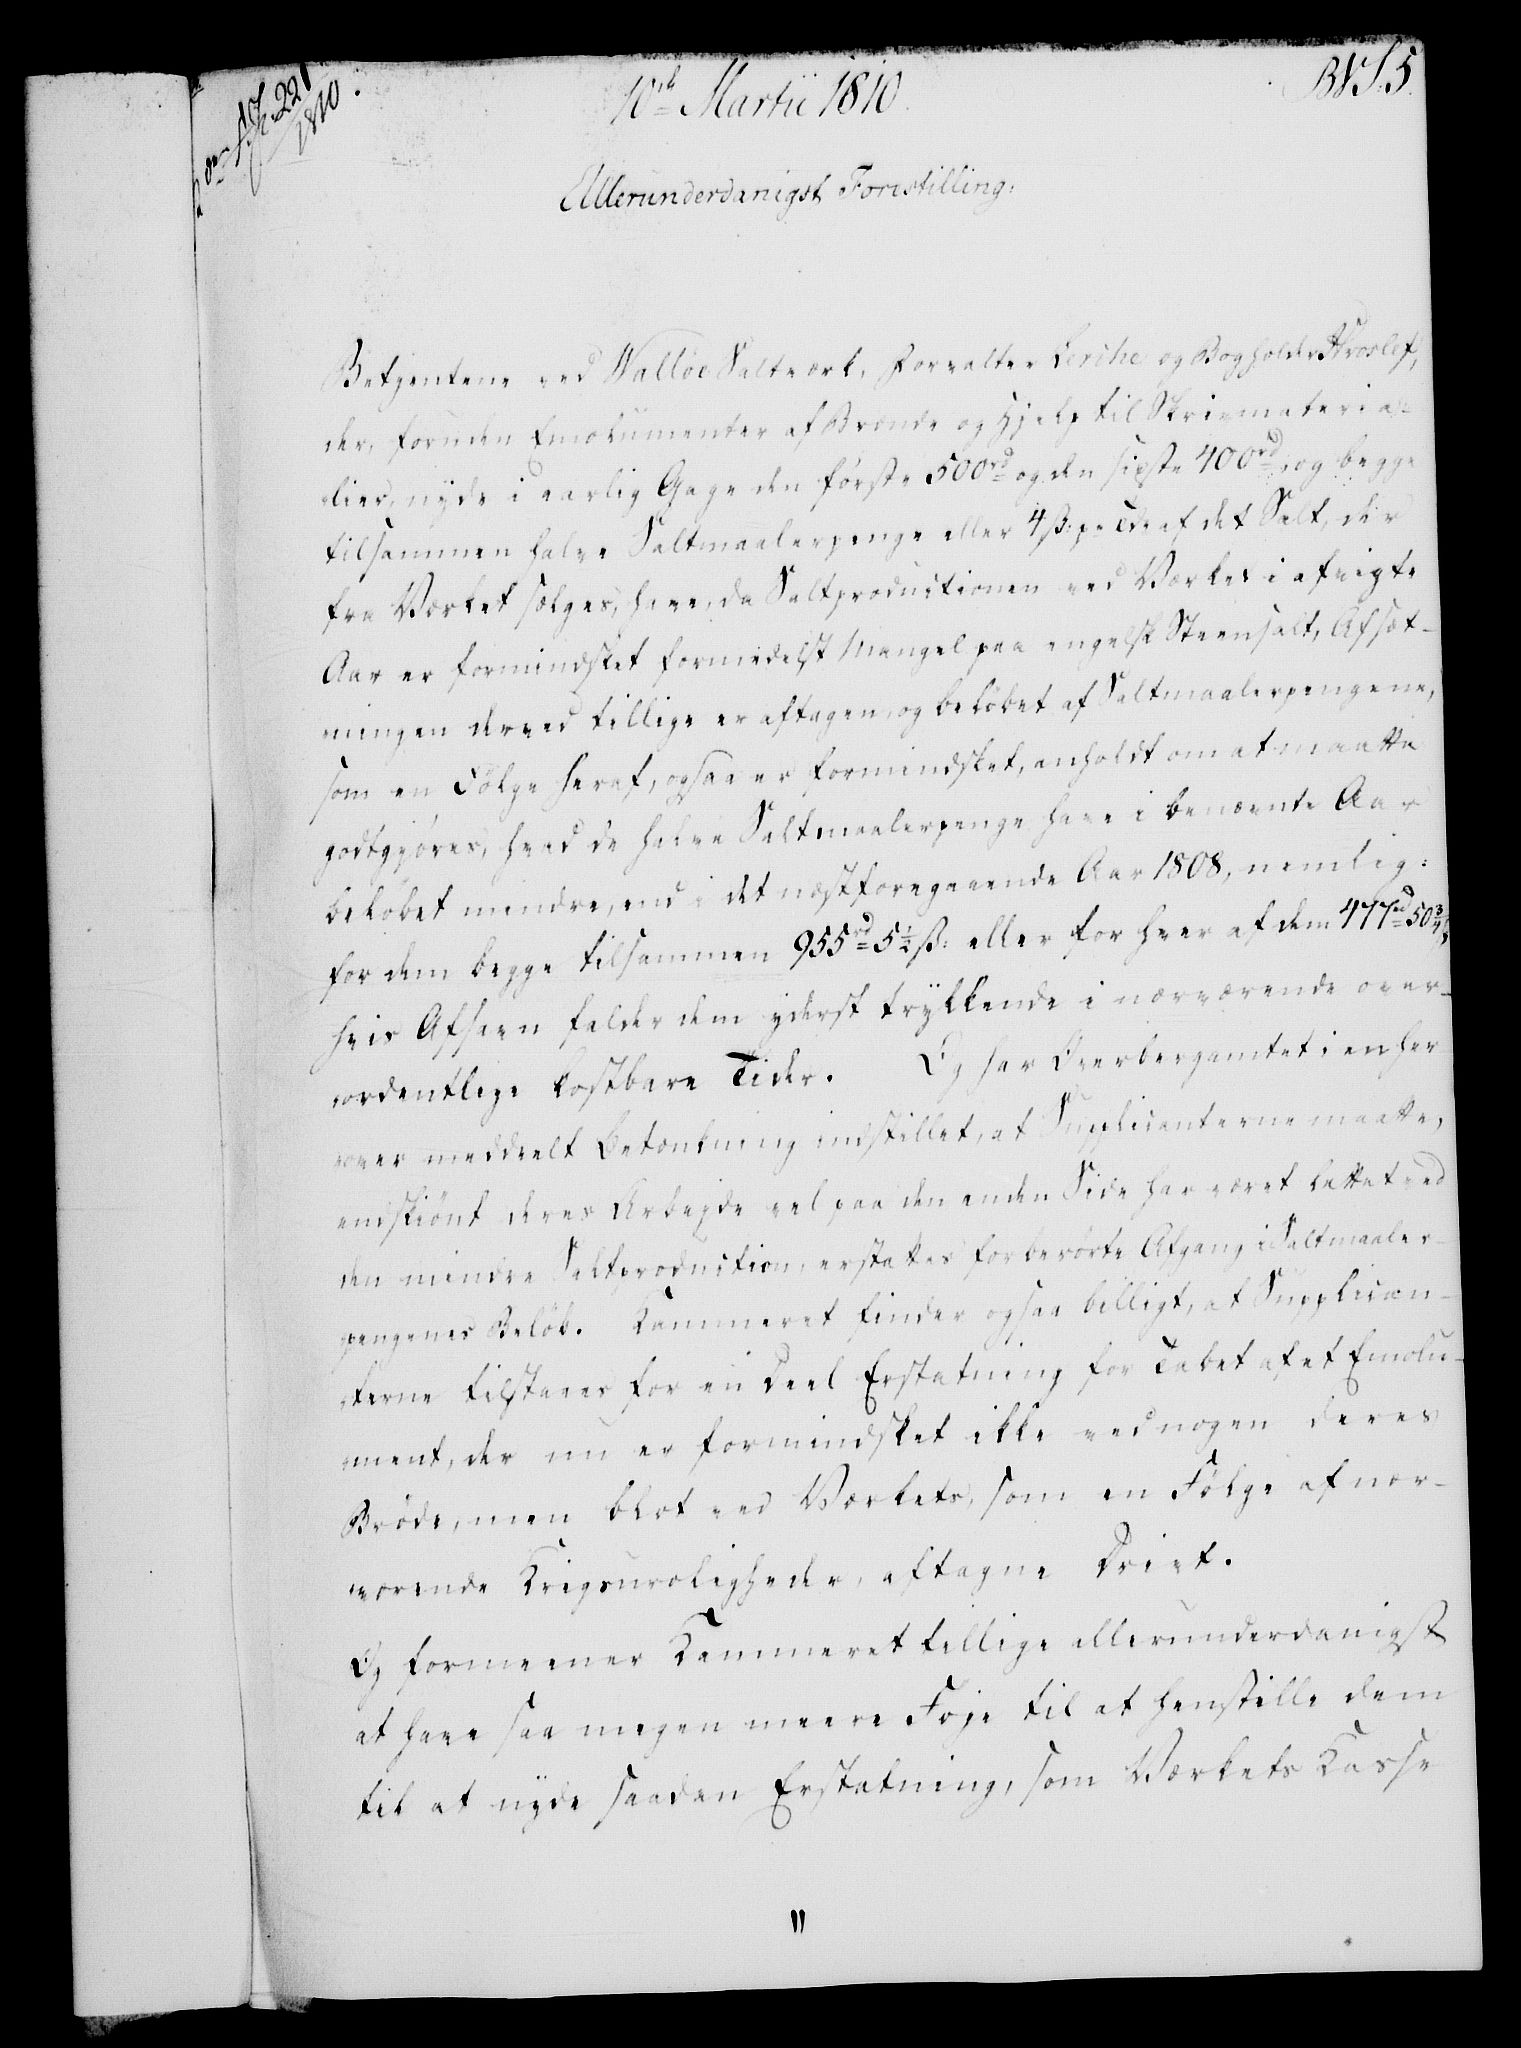 10de Martii 1810.
BVS. 5.
221
1810
Allerunderdanigst Forestilling:
Betjentene ved Walløe Saltværk, Forvalter Lerche og Bogholder
der, foruden Emolumenter af Brænde og Hjelp til Skrivmateria-
lier, nyde i aarlig Gage den første 500rd og den sidste 400rd, og begge
tilsammen halve Saltmaalerpenge eller 4 ß: pr Tde af det Salt, der
fra Værket sælges, have, da Saltproductionen ved Værket i afvigte
Aar er formindsket formedelst Mangel paa engelsk Steensalt, Afsæt-
ningen derved tillige er aftagen, og beløbet af Saltmaalerpengene,
som en Følge heraf, ogsaa er formindsket, anholdt om at maatte
godtgjøres, hvad de halve Saltmaalerpenge have i benævnte Aar
beløbet mendre, end i det næstforegaaende Aar 1808, nemlig:
for dem begge tilsammen 955rd 5½ ß: eller for hver af dem 477rd 50¾ ß,
hvis Afsavn falder dem yderst trykkende i nærværende over-
ordentlige kostbare Tider. Og har Overbergamtet i en her-
over meddeelt Betænkning indstillet, at Supplicanterne maatte,
endskiønt deres Arbejde vel paa den anden Side har været lettet ved
den mindre Saltproduction, erstattes forberørte Afgang i Saltmaaler-
pengenes Beløb. Kammeret finder ogsaa billigt, at Supplican-
terne tilstaaes for en Deel Erstatning for Tabet af et Emolu-
ment, der nu er formindsket ikke ved nogen deres
Brøde, men blot ved Værkets, som en Følge af nær-
værende Krigsuroligheder, aftagne Drivt.
Og formeener Kammeret tillige allerunderdanigst
at have saa megen meere Føje til at henstille dem
til at nyde saadan Erstatning, som Værkets Casse